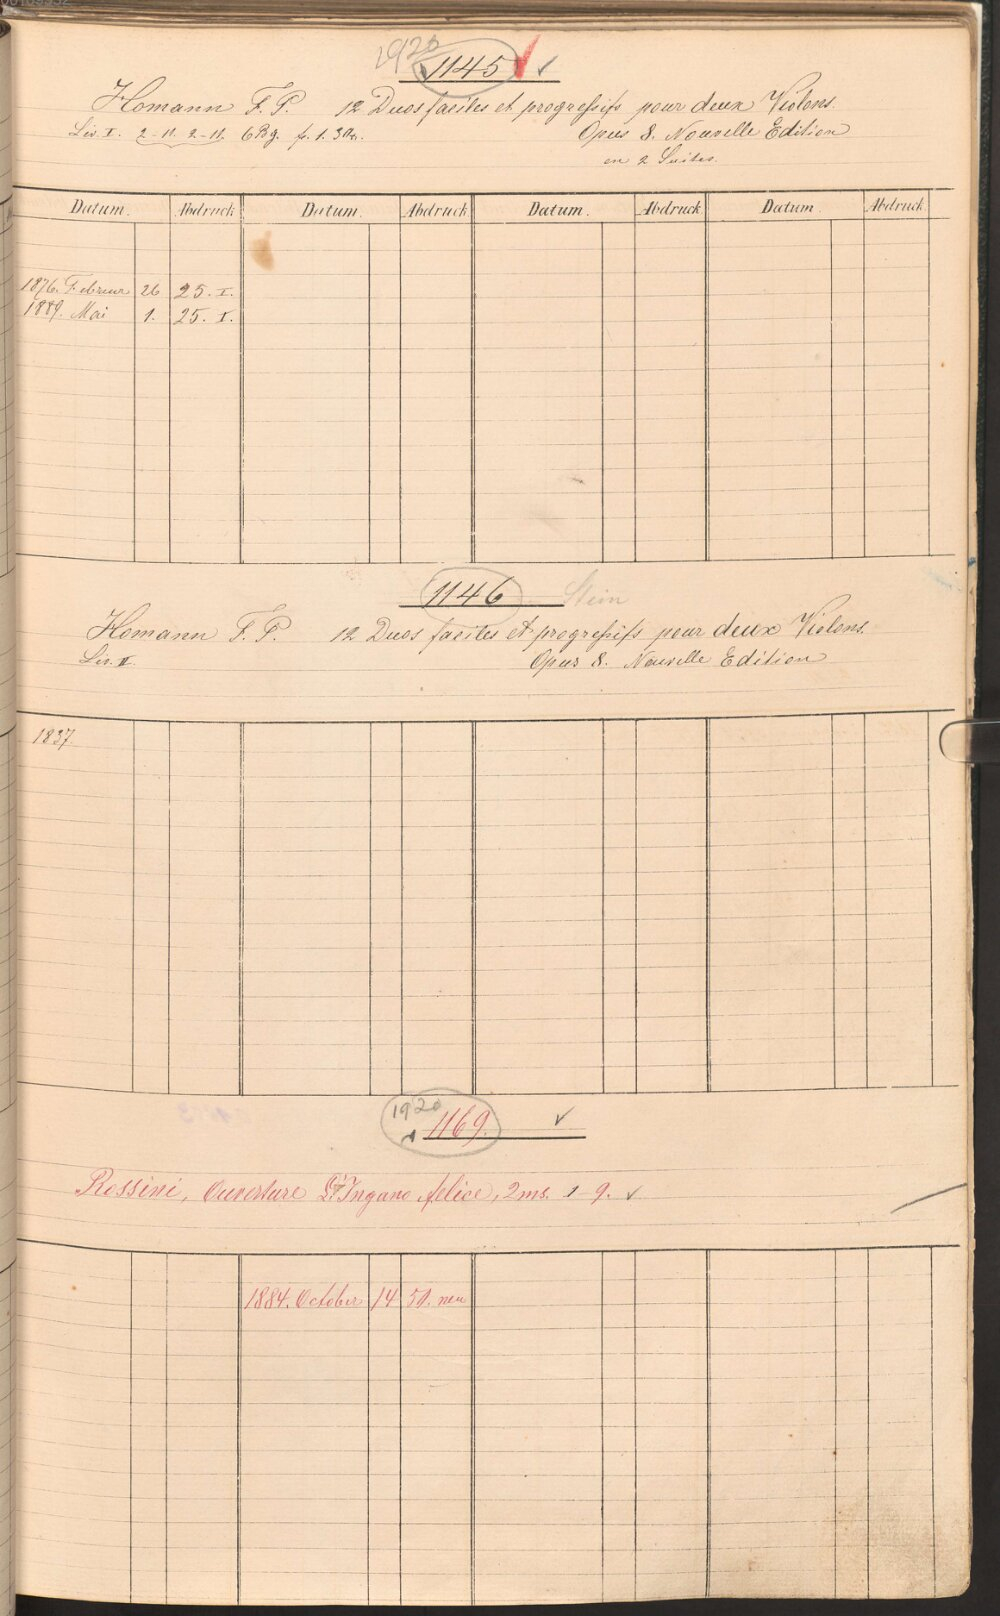 1920
1145
Homann F. P. 12 Duos faciles et progressifs pour deux Violons.
Liv. I. 2-11. 2-11. 6 Bg. Opus 8. Nouvelle Edition
en 2 Suites.
Datum. Abdruck Datum. Abdruck Datum. Abdruck Datum. Abdruck
1876. Februar 26 25. I.
1889. Mai 1. 25. I.
1146 Stein
Homann F. P. 12 Duos faciles et progressifs pour deux Violons.
Liv. II. Opus 8. Nouvelle Edition
1837.
1920
1169.
Rossini, Ouverture L'Ingano felice, 2ms. 1-9.
1884. October 14 50. neu